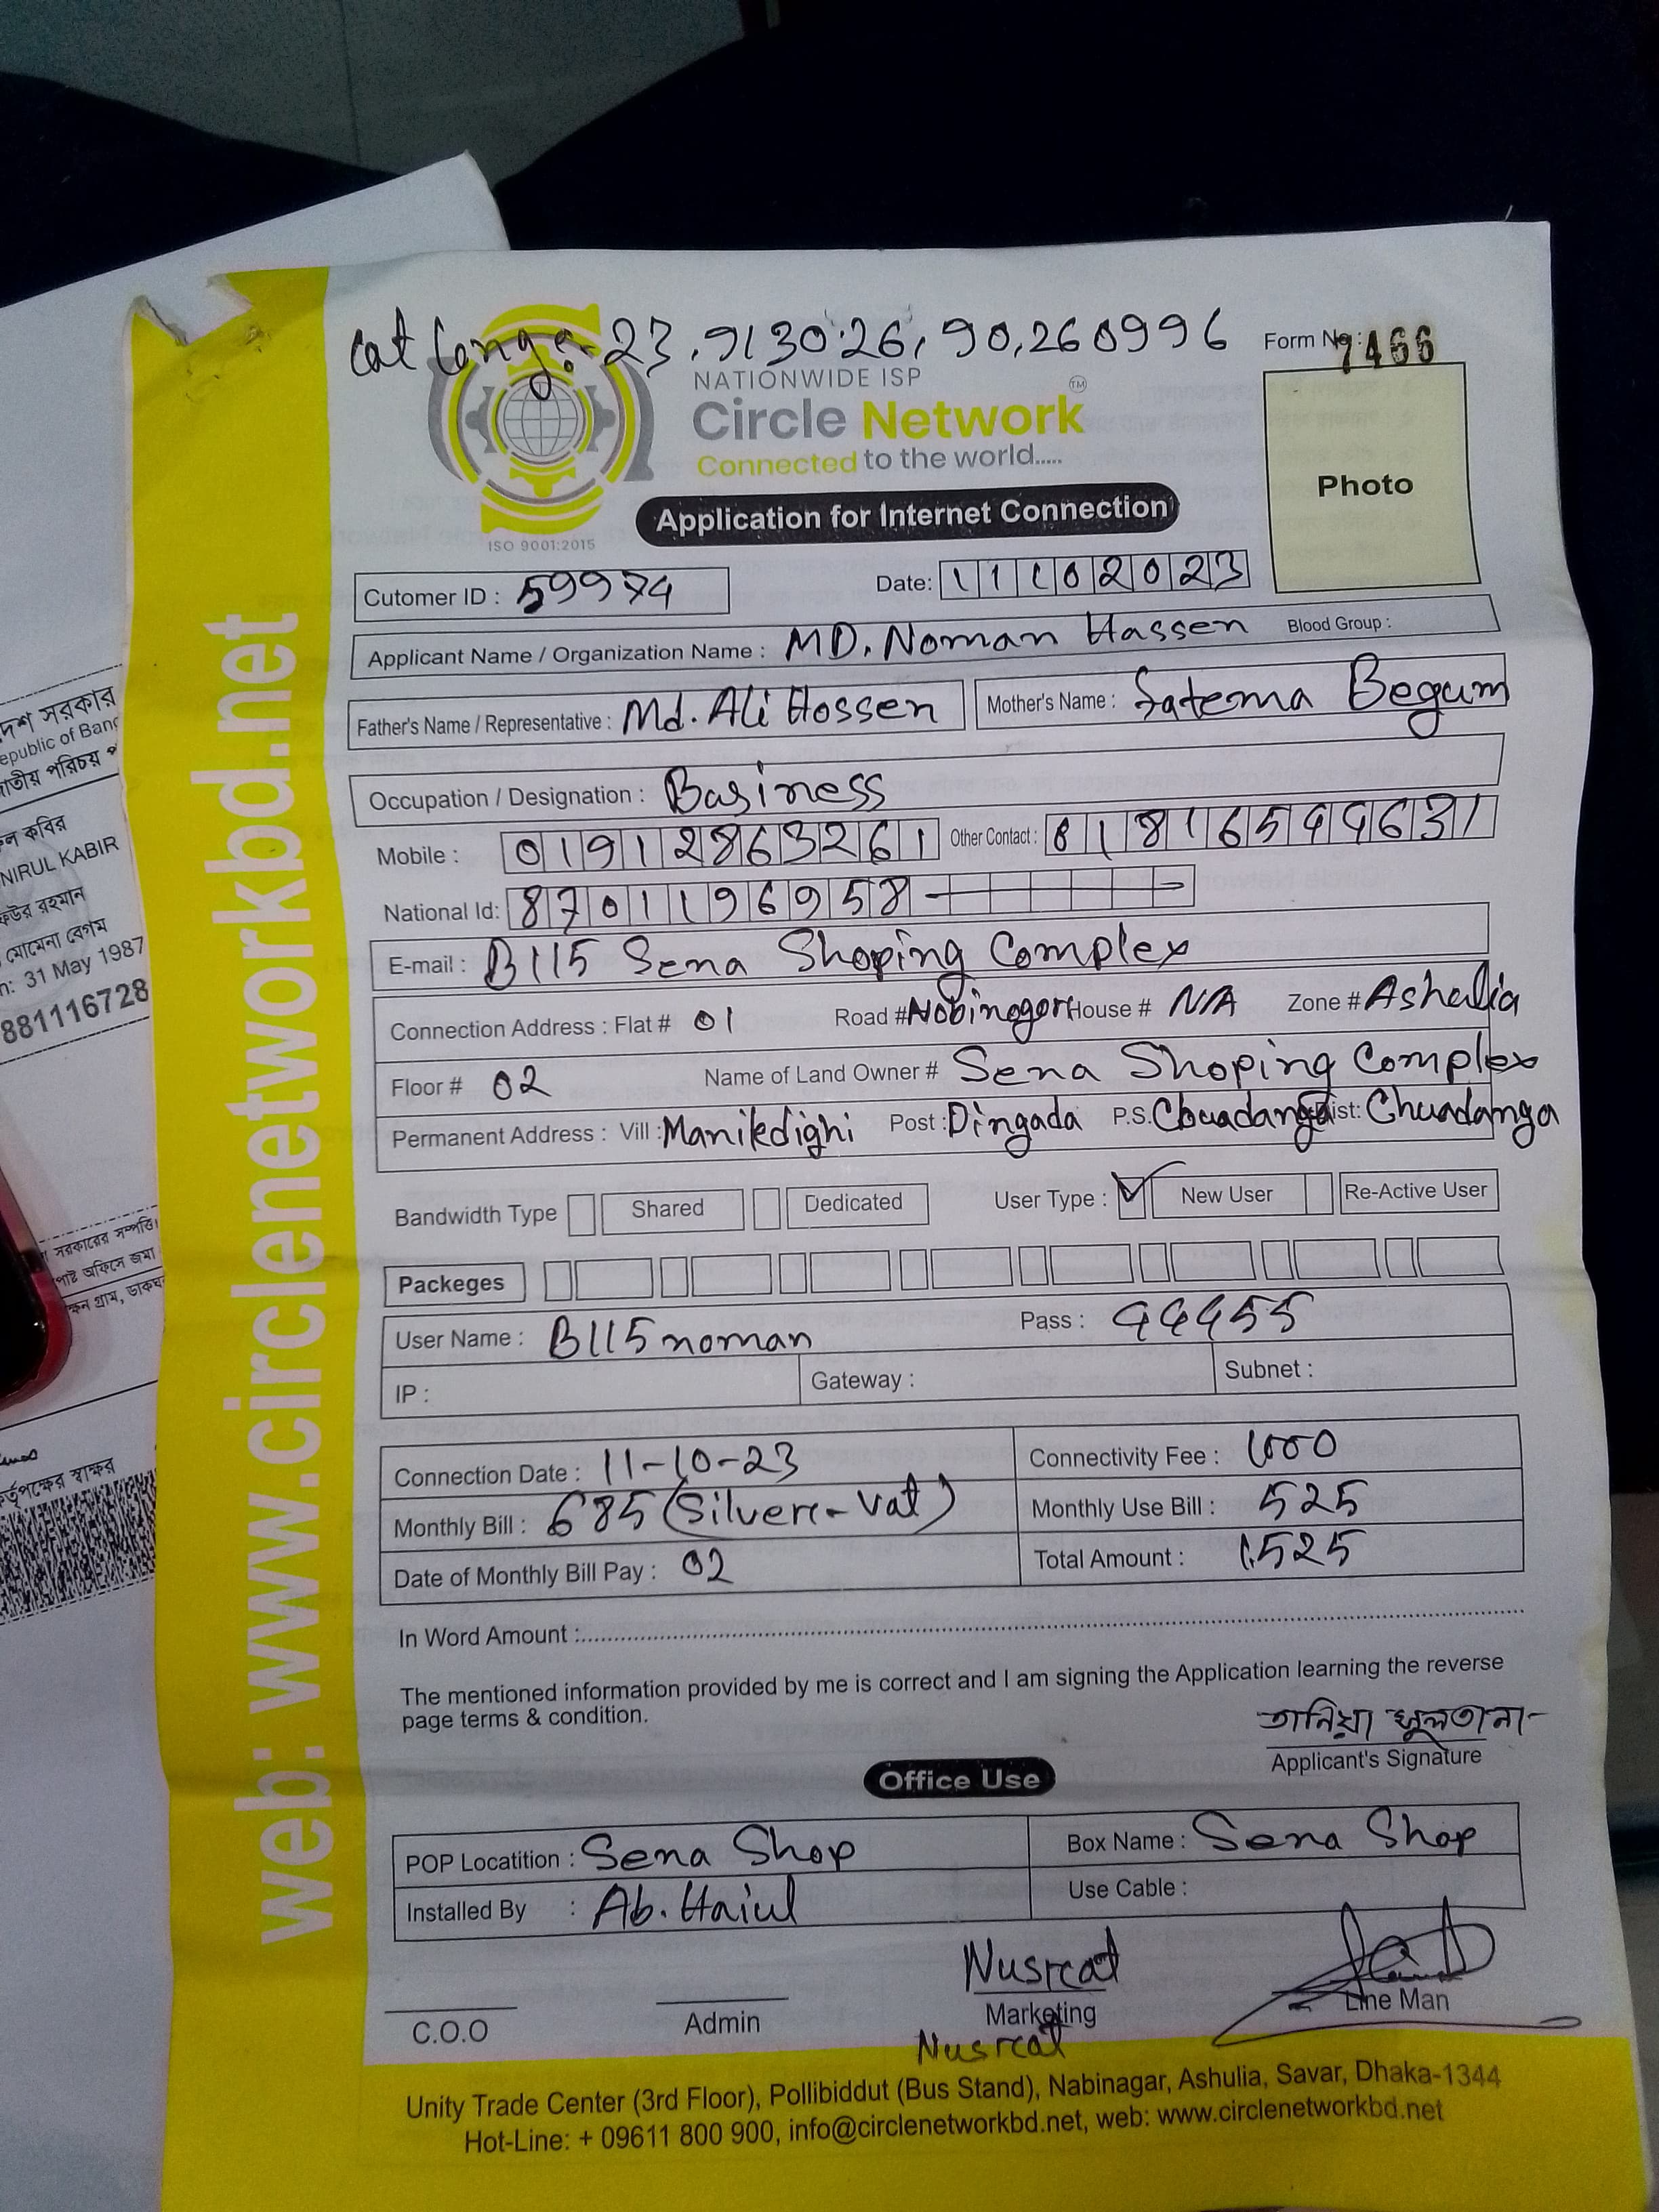 Lat Long:- 23.913026, 90.260996
Form No: 7466
NATIONWIDE ISP
Circle Network TM
Connected to the world.....
ISO 9001:2015
Application for Internet Connection
Photo
Cutomer ID : 59974
Date: 11102023
Applicant Name / Organization Name : MD. Noman Hassen Blood Group :
Father's Name / Representative : Md. Ali Hossen Mother's Name : Fatema Begum
Occupation / Designation : Business
Mobile : 01912863261 Other Contact :
National Id: 8701196958
E-mail : B115 Sena Shoping Complex
Connection Address : Flat # 01 Road # Nobinogor House # N/A Zone # Ashulia
Floor # 02 Name of Land Owner # Sena Shoping Complex
Permanent Address : Vill : Manikdighi Post : Dingada P.S. Chuadanga Dist: Chuadanga
Bandwidth Type Shared Dedicated User Type : New User Re-Active User
Packeges
User Name : B115noman Pass : 44455
IP : Gateway : Subnet :
Connection Date : 11-10-23 Connectivity Fee : 1000
Monthly Bill : 685 (Silver-vat) Monthly Use Bill : 525
Date of Monthly Bill Pay : 02 Total Amount : 1525
In Word Amount :
The mentioned information provided by me is correct and I am signing the Application learning the reverse
page terms & condition.
তানিয়া সুলতানা
Applicant's Signature
Office Use
POP Locatition : Sena Shop Box Name : Sena Shop
Installed By : Ab. Haiul Use Cable :
Nusrat
C.O.O Admin Marketing Line Man
Nusrat
Unity Trade Center (3rd Floor), Pollibiddut (Bus Stand), Nabinagar, Ashulia, Savar, Dhaka-1344
Hot-Line: + 09611 800 900, info@circlenetworkbd.net, web: www.circlenetworkbd.net
web: www.circlenetworkbd.net
সরকার
epublic of Bang
জাতীয় পরিচয়
কবির
NIRUL KABIR
রহমান
মোমেনা বেগম
n: 31 May 1987
881116728
সরকারের সম্পত্তি
অফিসে জমা
গ্রাম, ডাকঘর
কর্তৃপক্ষের স্বাক্ষর